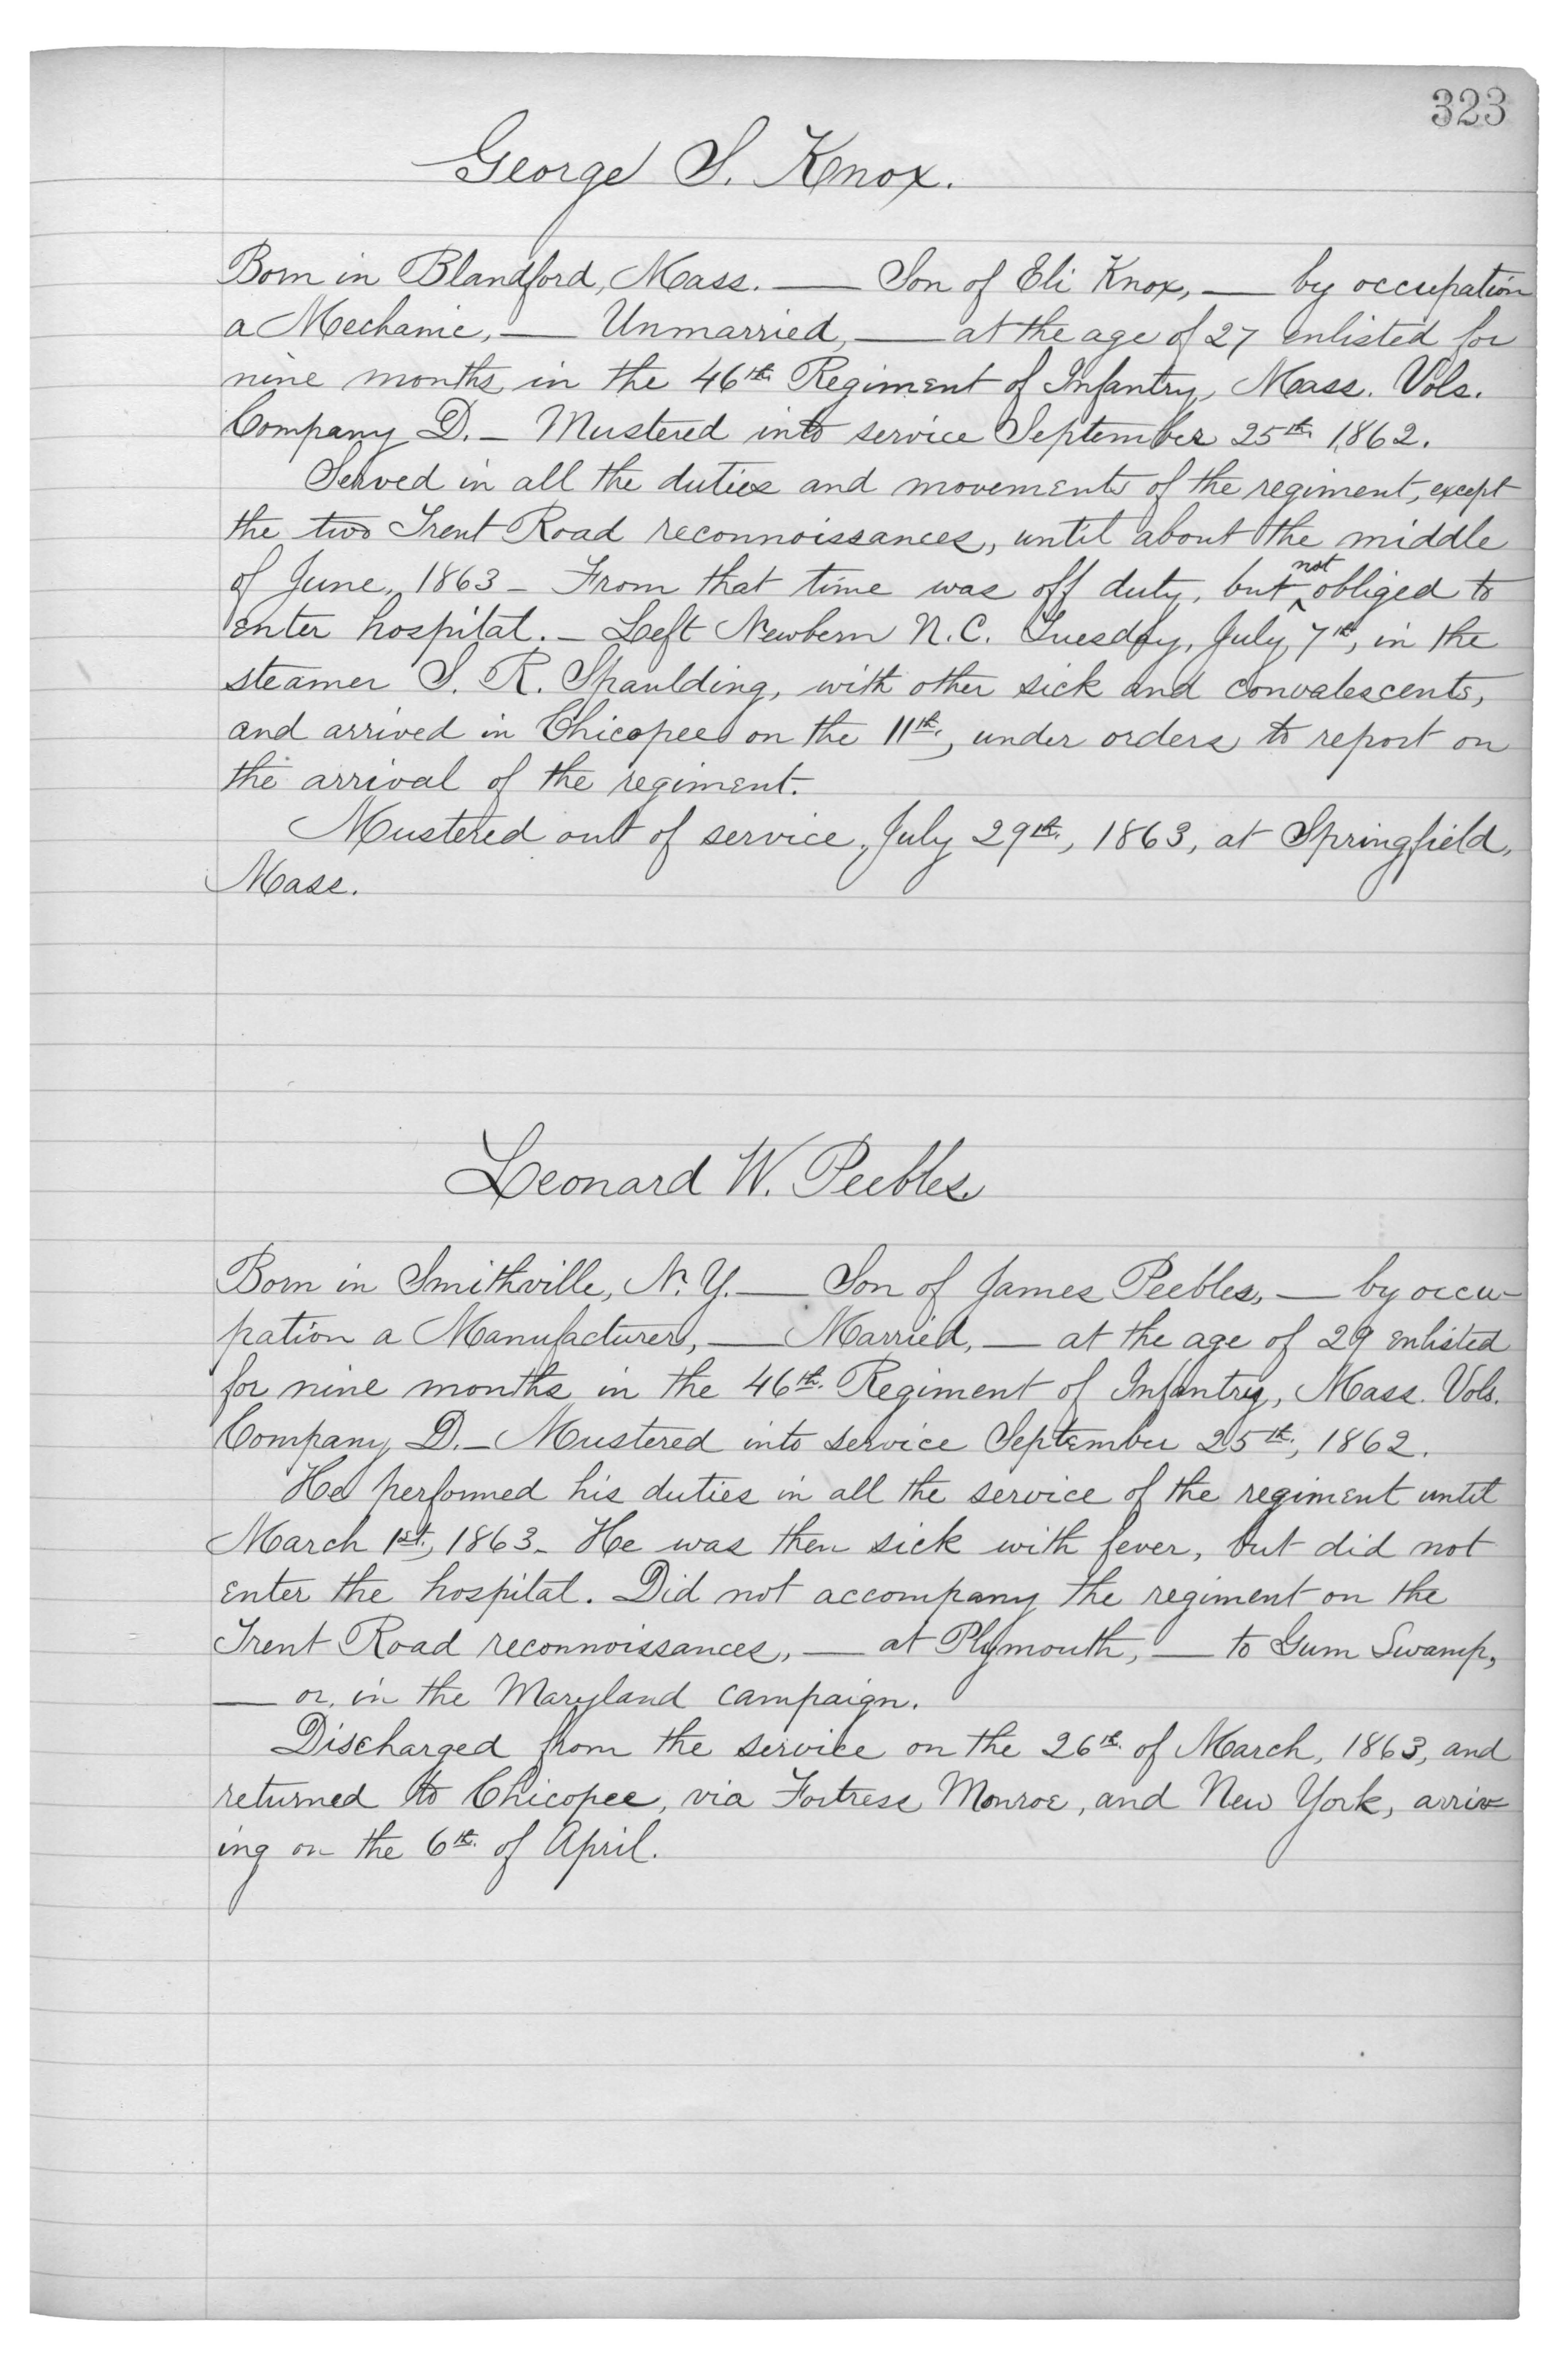 323
George S. Knox.
Born in Blandford, Mass. — Son of Eli Knox, — by occupation
a Mechanic, — Unmarried, — at the age of 27 enlisted for
nine months in the 46th. Regiment of Infantry, Mass. Vols.
Company D. – Mustered into service September 25th. 1862.
Served in all the duties and movements of the regiment, except
the two Trent Road reconnoissances, until about the middle
of June, 1863 – From that time was off duty, but not obliged to
enter hospital. – Left Newbern N.C. Tuesday, July 7th, in the
steamer S. R. Spaulding, with other sick and convalescents,
and arrived in Chicopee on the 11th., under orders to report on
the arrival of the regiment.
Mustered out of service, July 29th., 1863, at Springfield,
Mass.
Leonard W. Peebles
Born in Smithville, N.Y. — Son of James Peebles, — by occu-
pation a Manufacturer, — Married, — at the age of 29 enlisted
for nine months in the 46th. Regiment of Infantry, Mass. Vols.
Company D. – Mustered into service September 25th., 1862.
He performed his duties in all the service of the regiment until
March 1st., 1863 – He was then sick with fever, but did not
enter the hospital. Did not accompany the regiment on the
Trent Road reconnoissances, — at Plymouth, — to Gum Swamp,
— or, in the Maryland campaign.
Discharged from the service on the 26th. of March, 1863, and
returned to Chicopee, via Fortress Monroe, and New York, arriv-
ing on the 6th. of April.